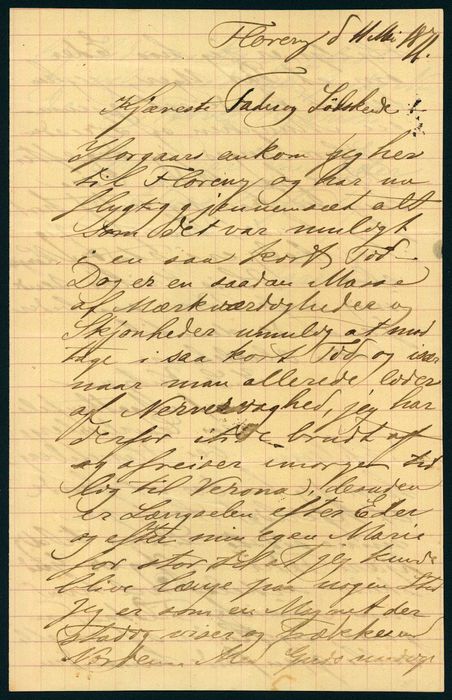 Florenz d 11 Mai 1871.
Kjæreste Fader og Södskende!
Iforgaars ankom jeg her
til Florenz og har nu
flygtig gjennemseet alt
som det var muligt
i en saa kort Tid
Dog er en saadan Masse
af Mærkværdigheder og
Skjönheder umulig at mod
tage i saa kort Tid og især
naar man allerede lider
af Nervesvaghed, jeg har
derfor brudt af
og afreiser imorgen tid
lig til Verona, desuden
er Længselen efter Eder
og efter min egen Marie
for stor til at jeg kunde
blive længe paa nogen Sted
Jeg er som en Magnet der
stadig viser og Trækkes mod
Norden. Med Guds